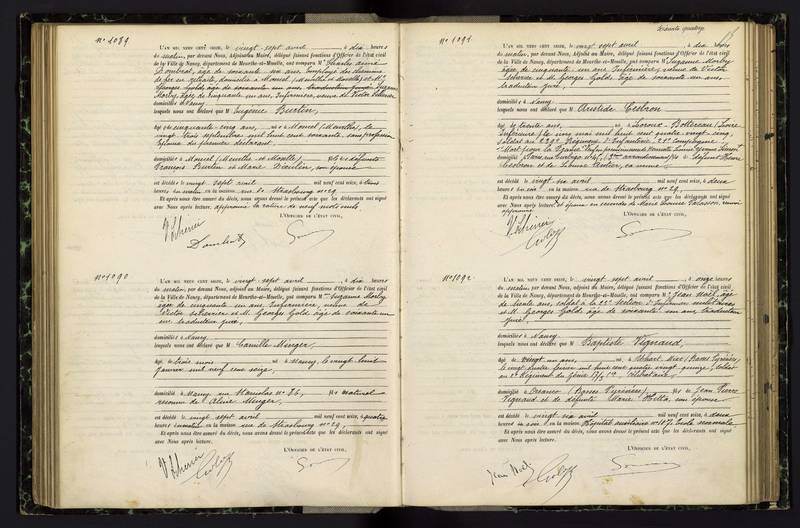 N° 1089
L'AN MIL NEUF CENT SEIZE, le vingt sept avril, à dix heures
du matin, par devant Nous, Adjoint au Maire, délégué faisant fonctions d'Officier de l'état civil
de la Ville de Nancy, département de Meurthe-et-Moselle, ont comparu M. Charles
âgé de soixante un ans, Employé des chemins
de fer en retraite, domicilié à Moncel (Meurthe et Moselle) et M.
Georges Gold, âgé de soixante un ans, traducteur juré
âgée de cinquante un ans, Infirmière, veuve de Victor
domiciliés à Nancy
lesquels nous ont déclaré que M Eugénie Burtin,
âgée de cinquante cinq ans, née à Moncel (Meurthe), le
vingt trois septembre mil huit cent soixante, sans profession
Epouse du premier déclarant
domiciliée à Moncel (Meurthe et Moselle) fille de défunts
François Burtin et Marie son épouse
est décédée le vingt sept avril mil neuf cent seize, à trois
heures du matin en la maison rue de Strasbourg n° 29
Et après nous être assuré du décès, nous avons dressé le présent acte que les déclarants ont signé
avec Nous après lecture, approuvé la rature de neuf mots nuls
L'OFFICIER DE L'ÉTAT CIVIL,
N° 1090
L'AN MIL NEUF CENT SEIZE, le vingt sept avril, à dix heures
du matin, par devant Nous, Adjoint au Maire, délégué faisant fonctions d'Officier de l'état civil
de la Ville de Nancy, département de Meurthe-et-Moselle, ont comparu M Suzanne Morby
âgée de cinquante un ans, Infirmière, veuve de
Victor et M. Georges Gold, âgé de soixante un
ans, traducteur juré,
domiciliés à Nancy
lesquels nous ont déclaré que M Camille Minger,
âgé de trois mois né à Nancy, le vingt huit
janvier mil neuf cent seize,
domicilié à Nancy, rue Stanislas n° 76, fils naturel
reconnu de Aline Minger,
est décédé le vingt sept avril mil neuf cent seize, à quatre
heures du matin en la maison rue de Strasbourg n° 29,
Et après nous être assuré du décès, nous avons dressé le présent acte que les déclarants ont signé
avec Nous après lecture.
L'OFFICIER DE L'ÉTAT CIVIL,
N° 1091
L'AN MIL NEUF CENT SEIZE, le vingt sept avril, à dix heures
du matin, par devant Nous, Adjoint au Maire, délégué faisant fonctions d'Officier de l'état civil
de la Ville de Nancy, département de Meurthe-et-Moselle, ont comparu M Suzanne Morby
âgée de cinquante un ans, Infirmière, veuve de Victor
et M. Georges Gold, âgé de soixante un ans,
traducteur juré
domiciliés à Nancy
lesquels nous ont déclaré que M Aristide Cesbron
âgé de trente ans, né à Loroux-Bottereau (Loire
Inférieure) le cinq mai mil huit cent quatre vingt cinq,
soldat au Régiment d'Infanterie, 21e Compagnie,
"Mort pour la France"
domicilié à Paris, fils de défunt Pierre
Cesbron et de
est décédé le vingt six avril mil neuf cent seize, à deux
heures du soir en la maison rue de Strasbourg n° 29,
Et après nous être assuré du décès, nous avons dressé le présent acte que les déclarants ont signé
avec Nous après lecture, et époux en secondes de Marie Louise renvoi
approuvé
L'OFFICIER DE L'ÉTAT CIVIL,
N° 1092
L'AN MIL NEUF CENT SEIZE, le vingt sept avril, à onze heures
du matin, par devant Nous, Adjoint au Maire, délégué faisant fonctions d'Officier de l'état civil
de la Ville de Nancy, département de Meurthe-et-Moselle, ont comparu M. Jean Noël, âgé
de trente ans, soldat à la Section d'Infirmiers
et M. Georges Gold, âgé de soixante un ans, traducteur
juré,
domiciliés à Nancy
lesquels nous ont déclaré que M Baptiste Vignaud,
âgé de vingt un ans, né à (Basses Pyrénées),
le vingt quatre février mil huit cent quatre vingt quinze, soldat
au Régiment du Génie Célibataire
domicilié à (Basses Pyrénées) fils de Jean Pierre
Vignaud et de défunte Marie son épouse
est décédé le vingt six avril mil neuf cent seize, à deux
heures du soir en la maison Hôpital auxiliaire n° 107, Ecole normale
Et après nous être assuré du décès, nous avons dressé le présent acte que les déclarants ont signé
avec Nous après lecture.
L'OFFICIER DE L'ÉTAT CIVIL,
Jean Noël